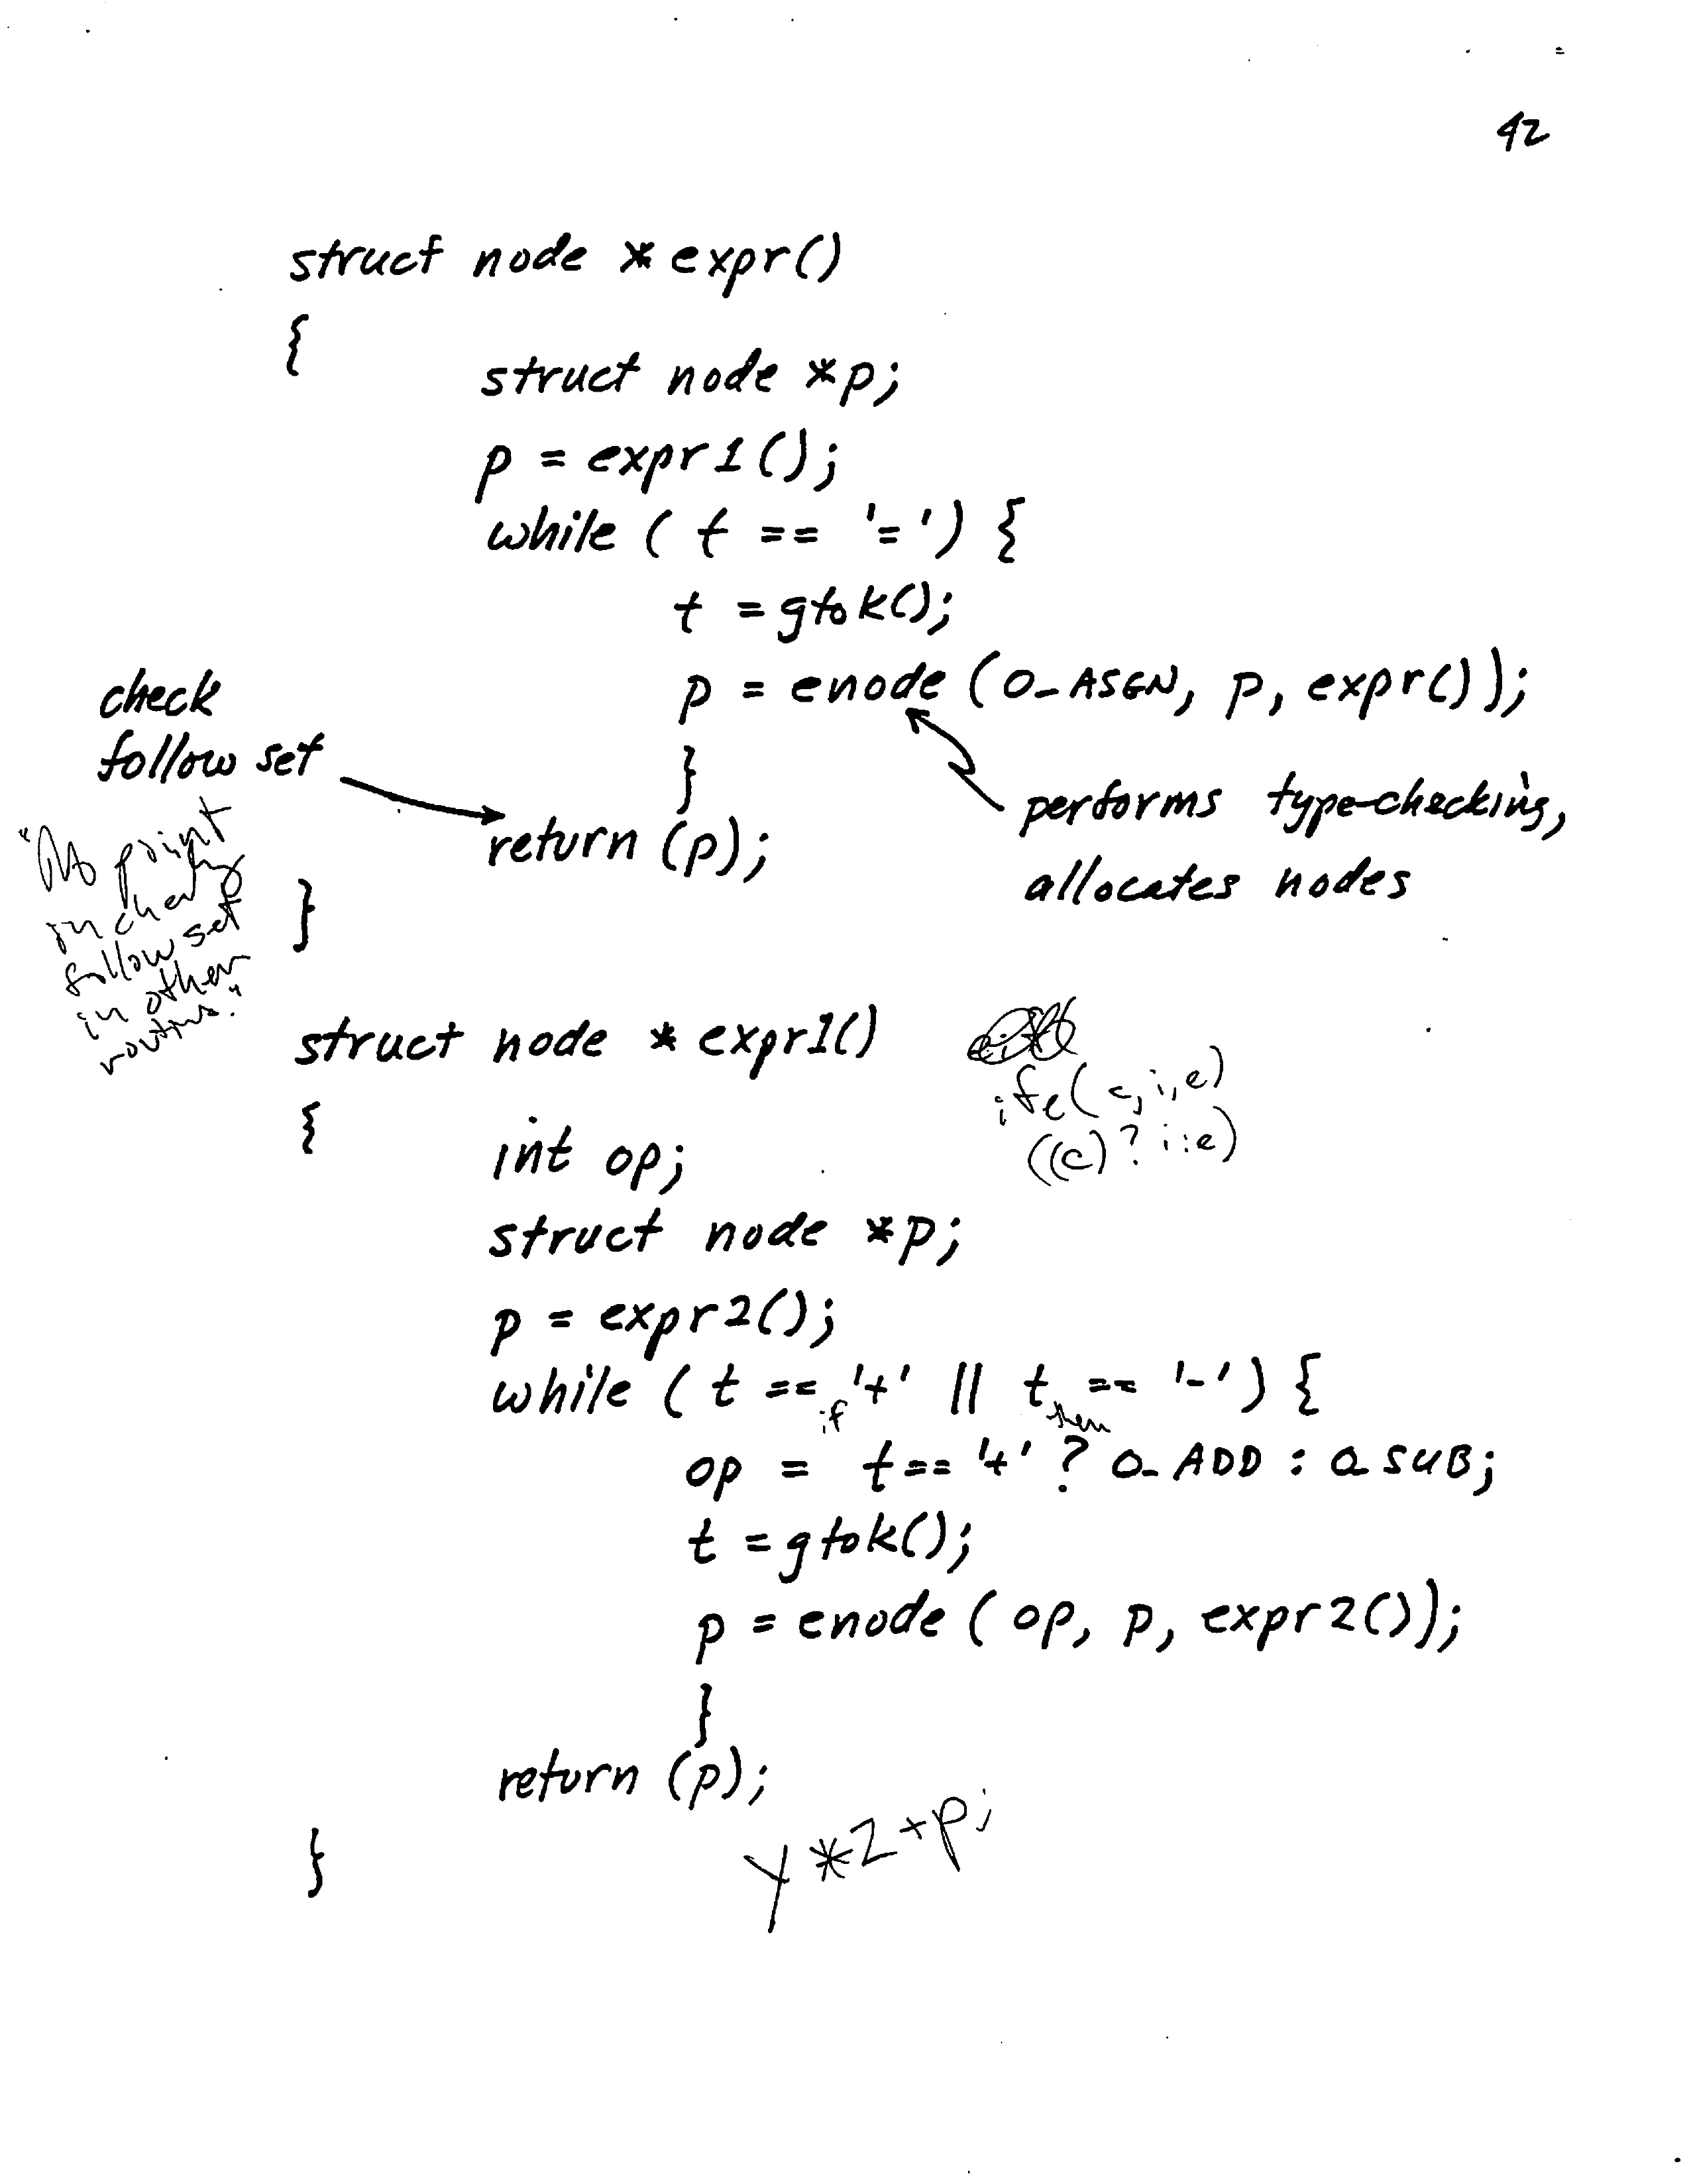 42
struct node *expr()
{
struct node *p;
p = expr1();
while ( t == '=') {
t = gtok();
p = enode (O_ASGN, p, expr());
}
check
follow set
return (p);
performs type-checking,
allocates nodes
}
"No point
in checking
follow set
in other
routines."
struct node *expr1()
ife(c,i,e)
((c)?i:e)
{
int op;
struct node *p;
p = expr2();
while ( t == '+' || t == '-') {
if then
op = t == '+' ? O_ADD : O_SUB;
t = gtok();
p = enode ( op, p, expr2());
}
return (p);
}
y*2+p;